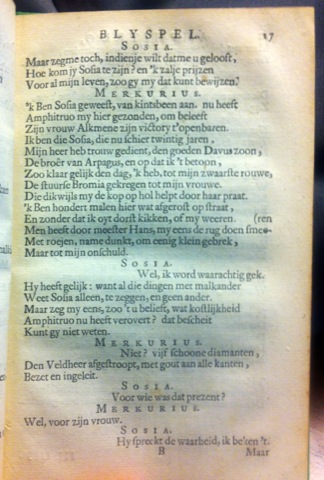 BLYSPEL. 17
SOSIA.
Maar zegme toch, indienje wilt datme u gelooft,
Hoe kom jy Sosia te zijn? en 'k zalje prijzen
Voor al mijn leven, zoo gy my dat kunt bewijzen.
MERKURIUS.
'k Ben Sosia geweest, van kintsbeen aan. nu heeft
Amphitruo my hier gezonden, om beleeft
Zijn vrouw Alkmene zijn victory t'openbaren.
Ik ben die Sosia, die nu schier twintig jaren,
Mijn heer heb trouw gedient, den goeden Davus zoon,
De broêr van Arpagus, en op dat ik 't betoon,
Zoo klaar gelijk den dag, 'k heb, tot mijn zwaarste rouwe,
De stuurse Bromia gekregen tot mijn vrouwe.
Die dikwijls my de kop op hol helpt door haar praat.
'k Ben hondert malen hier wat afgerost op straat,
En zonder dat ik oyt dorst kikken, of my weeren. (ren
Men heeft door meester Hans, my eens de rug doen smee-
Met roejen, name dunkt, om eenig klein gebrek,
Maar tot mijn onschuld.
SOSIA.
Wel, ik word waarachtig gek.
Hy heeft gelijk: want al die dingen met malkander
Weet Sosia alleen, te zeggen, en geen ander.
Maar zeg my eens, zoo 't u belieft, wat kostlijkheid
Amphitruo nu heeft verovert? dat bescheit
Kunt gy niet weten.
MERKURIUS.
Niet? vijf schoone diamanten,
Den Veldheer afgestroopt, met gout aan alle kanten,
Bezet en ingeleit.
SOSIA.
Voor wie was dat prezent?
MERKURIUS.
Wel, voor zijn vrouw.
SOSIA.
Hy spreekt de waarheid, ik beken 't.
B Maar